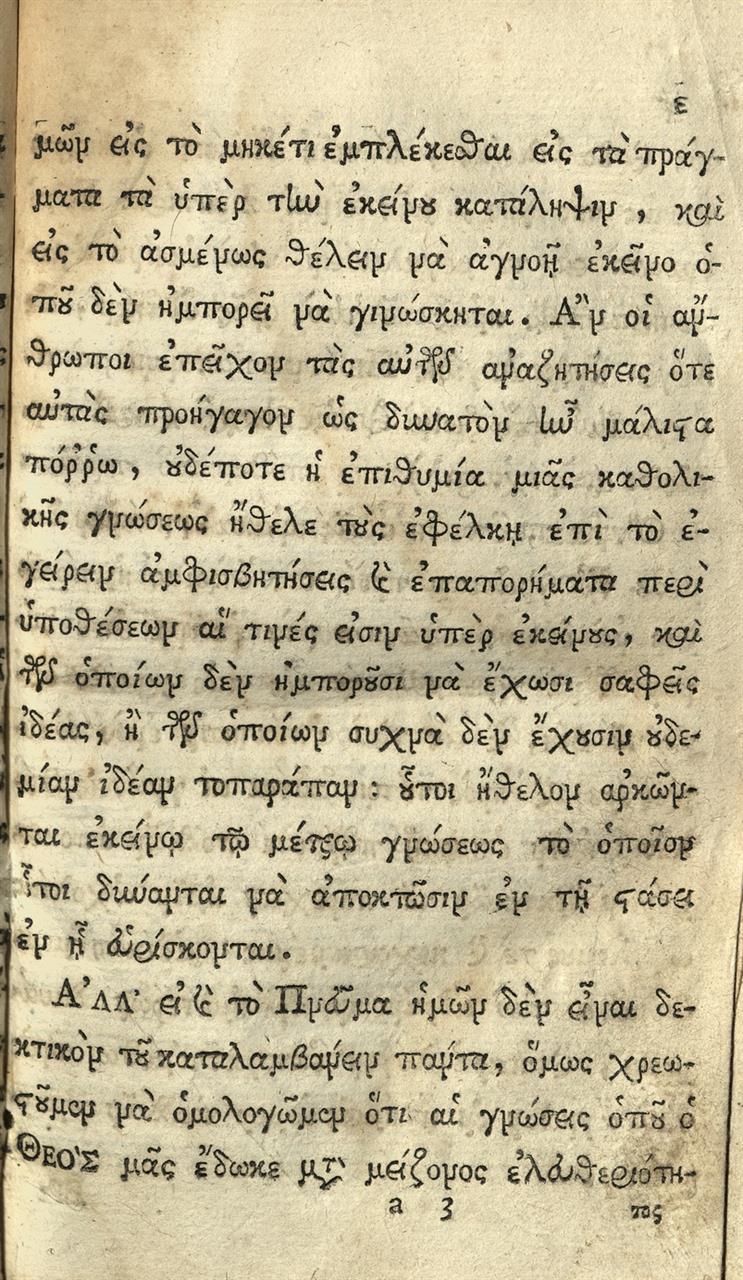 ε
μῶν εἰς τὸ μηκέτι ἐμπλέκεσθαι εἰς τὰ πράγ-
ματα τὰ ὑπὲρ τὴν ἐκείνου κατάληψιν, καὶ
εἰς τὸ ἀσμένως θέλειν νὰ ἀγνοῇ ἐκεῖνο ὁ-
ποῦ δὲν ἠμπορεῖ νὰ γινώσκηται. Ἂν οἱ ἄν-
θρωποι ἐπεῖχον τὰς αὐτῶν ἀναζητήσεις ὅτε
αὐτὰς προήγαγον ὡς δυνατὸν ἦν μάλιστα
πόῤῥω, οὐδέποτε ἡ ἐπιθυμία μιᾶς καθολι-
κῆς γνώσεως ἤθελε τοὺς ἐφέλκῃ ἐπὶ τὸ ἐ-
γείρειν ἀμφισβητήσεις καὶ ἐπαπορήματα περὶ
ὑποθέσεων αἵ τινές εἰσιν ὑπὲρ ἐκείνους, καὶ
τῶν ὁποίων δὲν ἠμποροῦσι νὰ ἔχωσι σαφεῖς
ἰδέας, ἢ τῶν ὁποίων συχνὰ δὲν ἔχουσιν οὐδε-
μίαν ἰδέαν τοπαράπαν: οὗτοι ἤθελον ἀρκῶν-
ται ἐκείνῳ τῷ μέτρῳ γνώσεως τὸ ὁποῖον
οὗτοι δύνανται νὰ ἀποκτῶσιν ἐν τῇ στάσει
ἐν ᾗ εὑρίσκονται.
Ἀλλ' εἰ καὶ τὸ Πνεῦμα ἡμῶν δὲν εἶναι δε-
κτικὸν τοῦ καταλαμβάνειν πάντα, ὅμως χρεω-
στοῦμεν νὰ ὁμολογῶμεν ὅτι αἱ γνώσεις ὁποῦ ὁ
ΘΕΟ'Σ μᾶς ἔδωκε μετὰ μείζονος ἐλευθεριότη-
a 3 τος